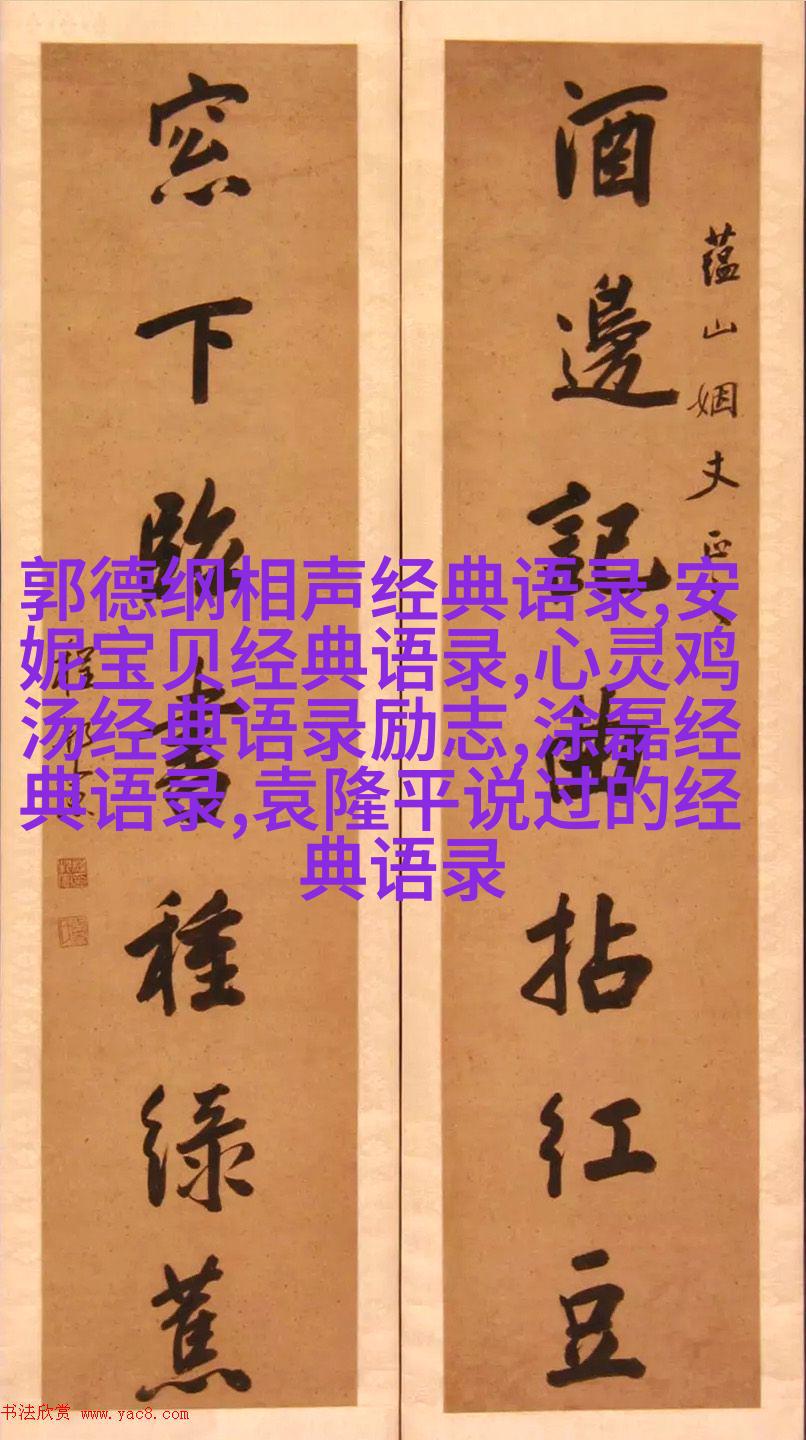 酒邊記曲拈紅豆
蘊山姻丈正
窓下臨書種綠蕉
郭德纲相声经典语录,安
妮宝贝经典语录,心灵鸡
汤经典语录励志,涂磊经
典语录,袁隆平说过的经
典语录
书法欣赏 www.yac8.com